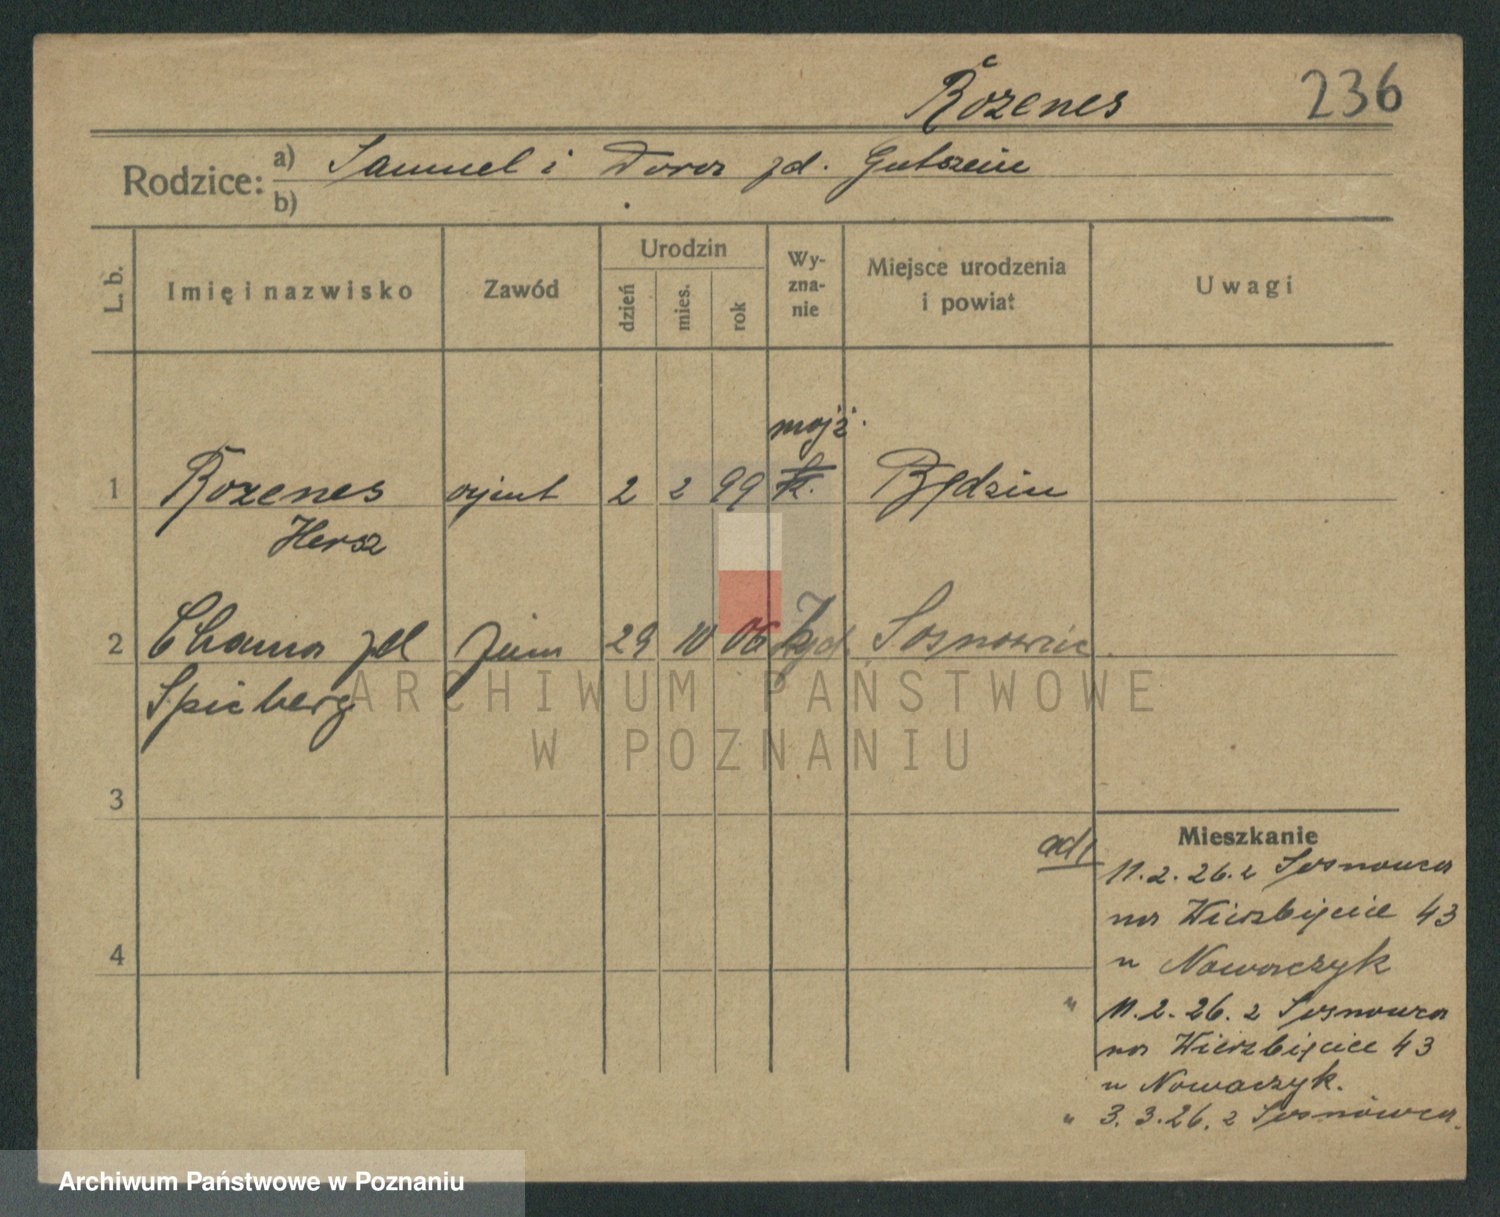 Rozenes 236
Rodzice: a) Samuel i Dora zd. Gutszein
b)
L. b. Imię i nazwisko Zawód Urodzin dzień mies. rok Wyznanie Miejsce urodzenia i powiat Uwagi
mojż.
1 Rozenes ajent 2 2 99 Będzin
Hersz
2 Chana zd żona 29 10 06 żyd. Sosnowiec
Spicberg
ARCHIWUM PAŃSTWOWE
W POZNANIU
3
Mieszkanie
ad 1 11.2.26. z Sosnowca
na Wierzbięcice 43
u Nowaczyk
4
" 11.2.26. z Sosnowca
na Wierzbięcice 43
u Nowaczyk.
" 3.3.26. z Sosnowca.
Archiwum Państwowe w Poznaniu